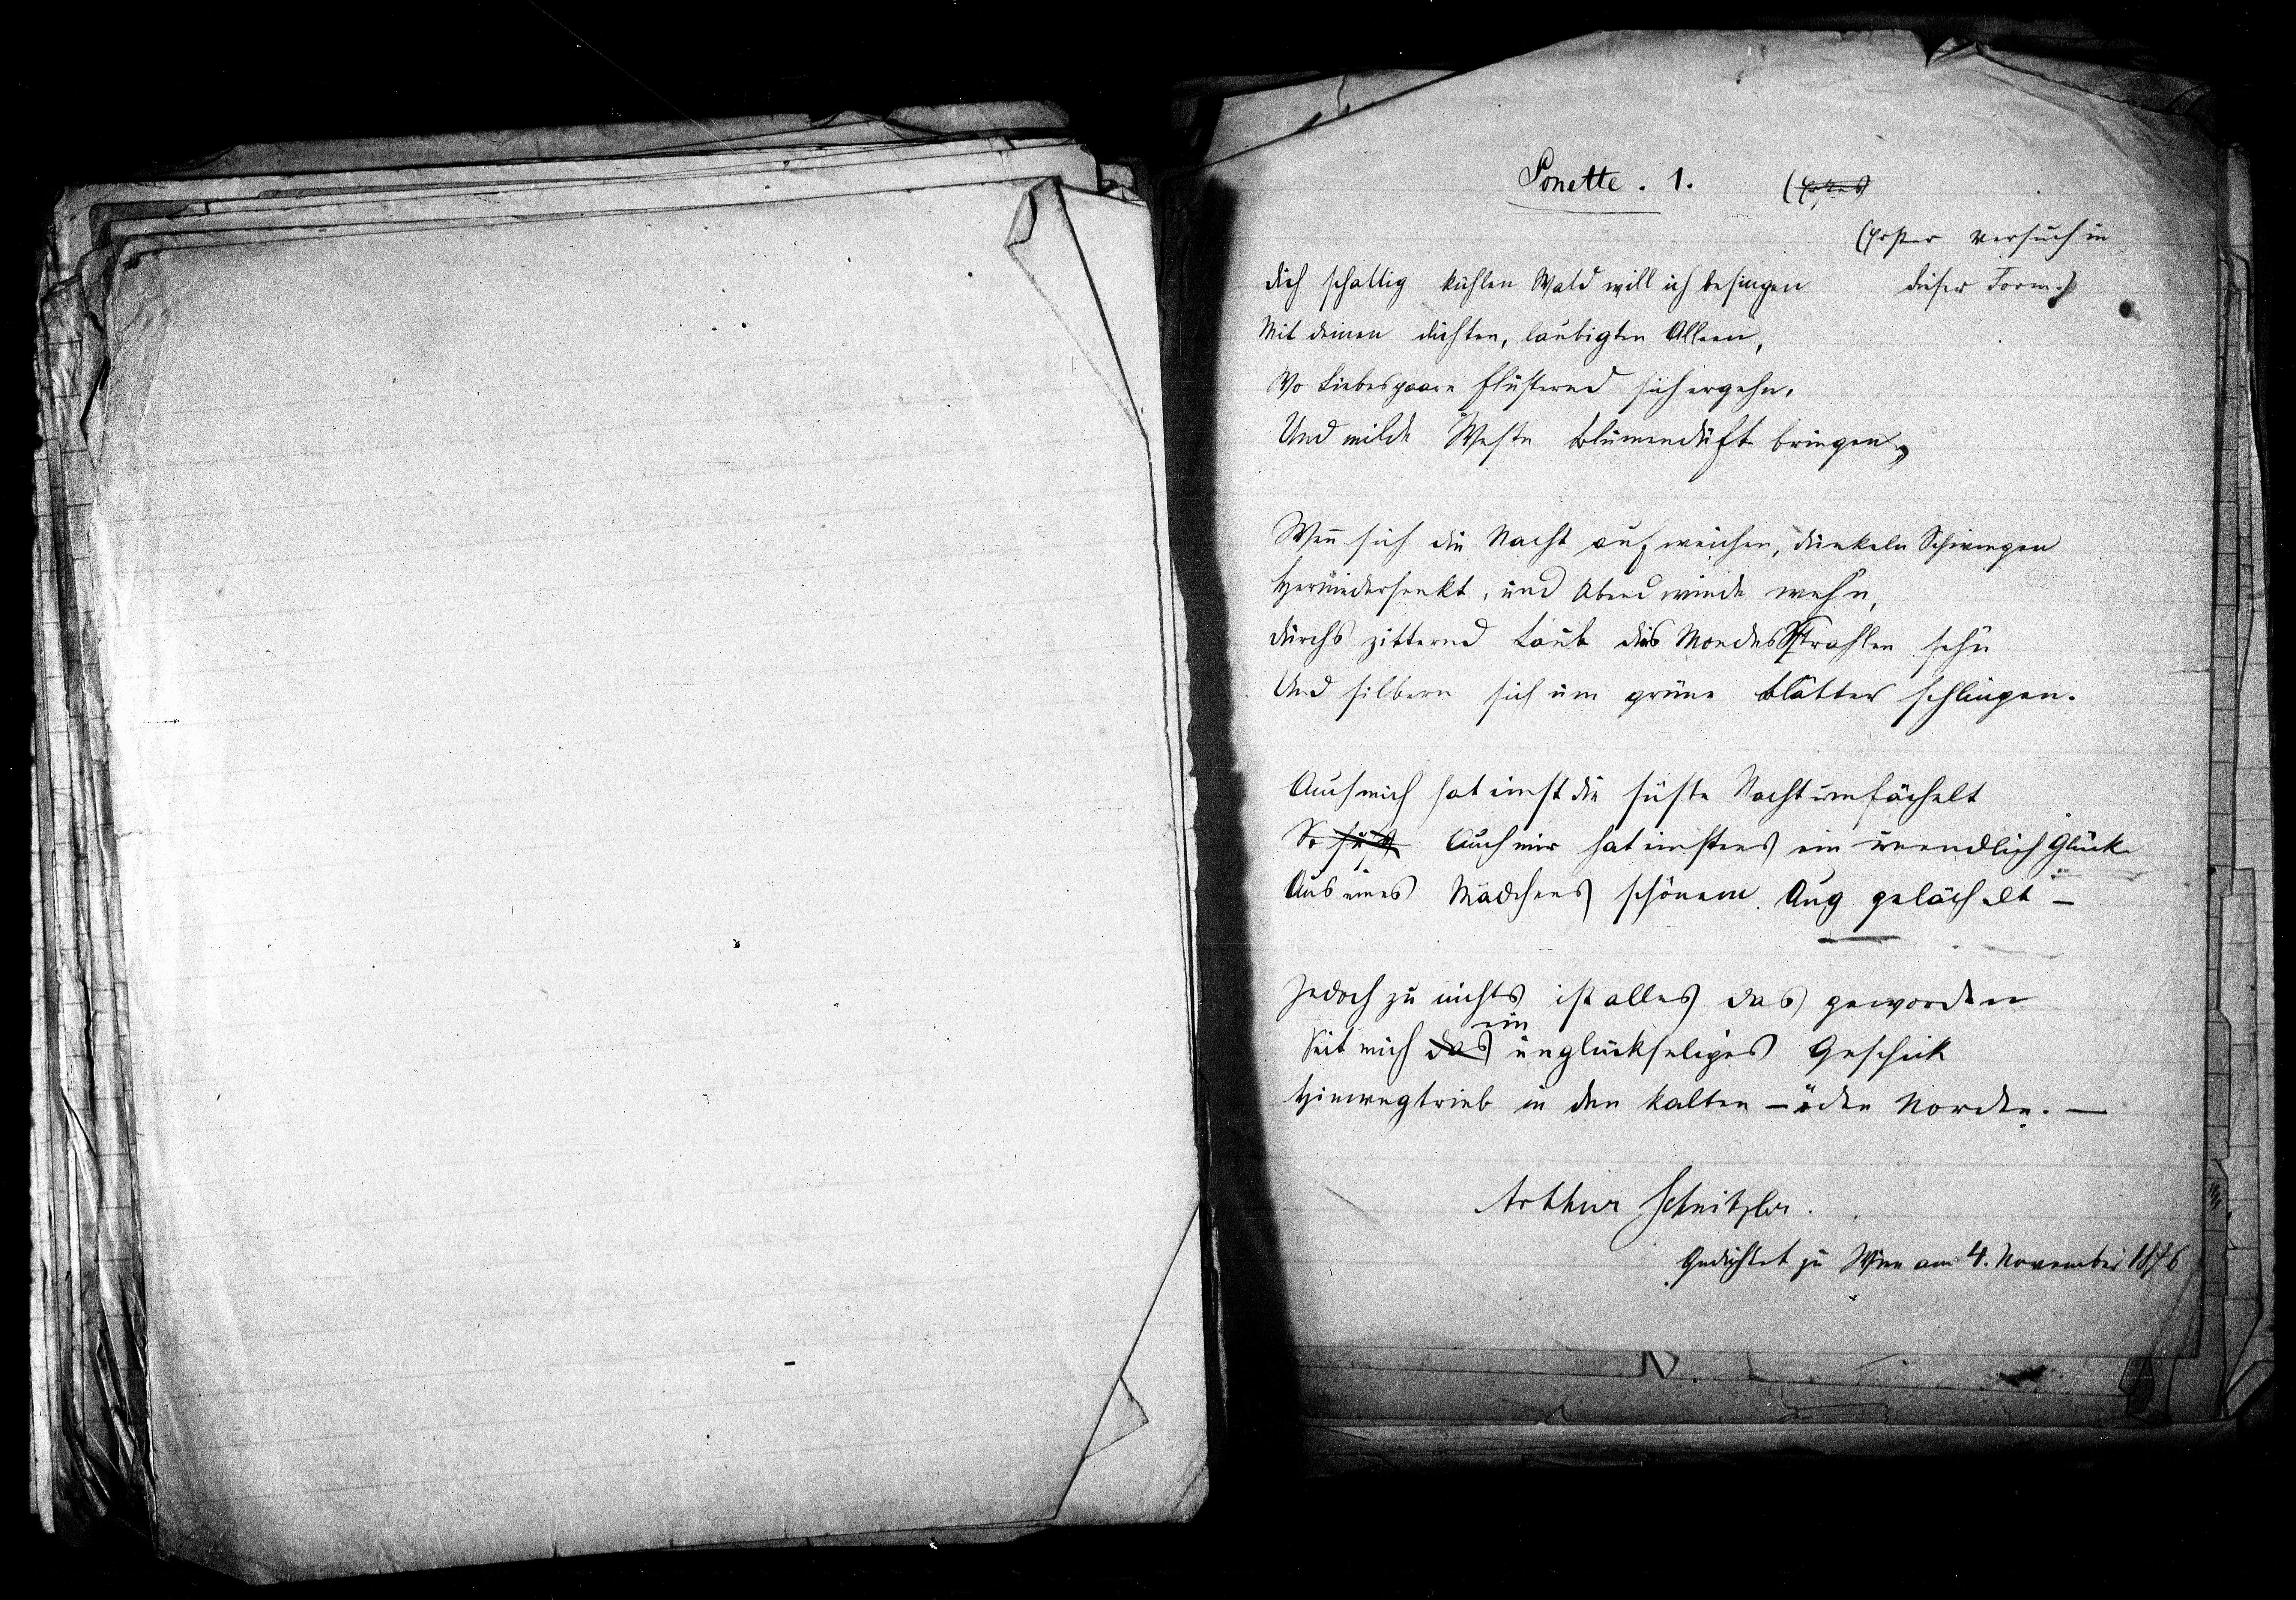 Sonette. 1.
(Erster Versuch in
dieser Form.)
Dich schattig kühlen Wald will ich besingen
Mit deinen dichten, laubigten Alleen,
Wo Liebespaare flüsternd sich ergehn,
Und milde Weste Blumenduft bringen,
Wen̄ sich die Nacht auf weichen, dunkeln Schwingen
Herniedersenkt, und Abendwinde wehn,
Durchs zitternd Laub des Mondes Strahlen sehn
Und silbern sich um grüne Blätter schlingen.
Auch mich hat einst die süße Nacht umfächelt
So süß Auch mir hat einstens ein unendlich Glück
Aus eines Mädchens schönem Aug gelächelt –
Jedoch zu nichts ist alles das geworden
ein
Seit mich das unglückseliges Geschick
Hinwegtrieb in den kalten – öden Norden. –
Arthur Schnitzler.
Gedichtet zu Wien am 4. November 1876